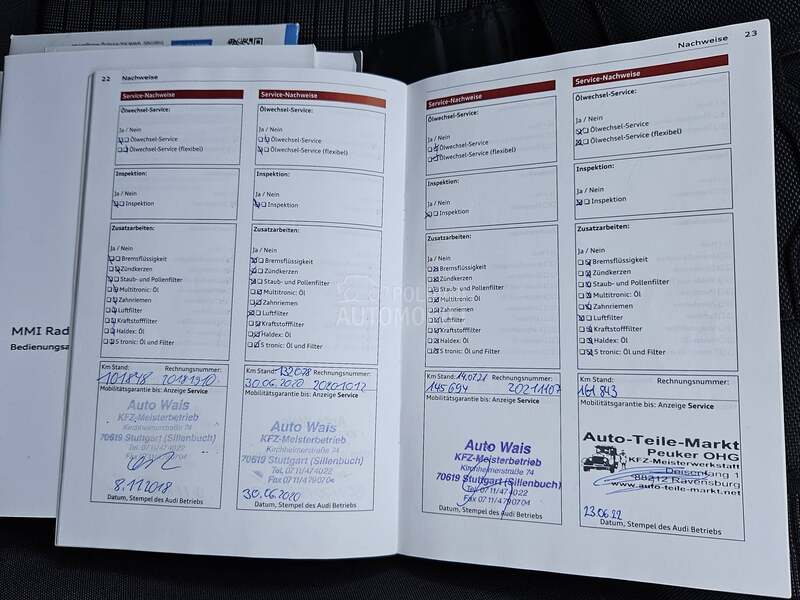 22 Nachweise
Service-Nachweise
Ölwechsel-Service:
Ja / Nein
Ölwechsel-Service
Ölwechsel-Service (flexibel)
Inspektion:
Ja / Nein
Inspektion
Zusatzarbeiten:
Ja / Nein
Bremsflüssigkeit
Zündkerzen
Staub- und Pollenfilter
Multitronic: Öl
Zahnriemen
Luftfilter
Kraftstofffilter
Haldex: Öl
S tronic: Öl und Filter
Km Stand: Rechnungsnummer:
101848 20181910
Mobilitätsgarantie bis: Anzeige Service
Auto Wais
KFZ-Meisterbetrieb
Kirchheimerstraße 74
70619 Stuttgart (Sillenbuch)
Tel. 0711/474022
Fax 0711/4790704
8.11.2018
Datum, Stempel des Audi Betriebs
Service-Nachweise
Ölwechsel-Service:
Ja / Nein
Ölwechsel-Service
Ölwechsel-Service (flexibel)
Inspektion:
Ja / Nein
Inspektion
Zusatzarbeiten:
Ja / Nein
Bremsflüssigkeit
Zündkerzen
Staub- und Pollenfilter
Multitronic: Öl
Zahnriemen
Luftfilter
Kraftstofffilter
Haldex: Öl
S tronic: Öl und Filter
Km Stand: 132028 Rechnungsnummer:
30.06.2020 20201012
Mobilitätsgarantie bis: Anzeige Service
Auto Wais
KFZ-Meisterbetrieb
Kirchheimerstraße 74
70619 Stuttgart (Sillenbuch)
Tel. 0711/474022
Fax 0711/4790704
30.06.2020
Datum, Stempel des Audi Betriebs
Nachweise 23
Service-Nachweise
Ölwechsel-Service:
Ja / Nein
Ölwechsel-Service
Ölwechsel-Service (flexibel)
Inspektion:
Ja / Nein
Inspektion
Zusatzarbeiten:
Ja / Nein
Bremsflüssigkeit
Zündkerzen
Staub- und Pollenfilter
Multitronic: Öl
Zahnriemen
Luftfilter
Kraftstofffilter
Haldex: Öl
S tronic: Öl und Filter
Km Stand: 14.07.21 Rechnungsnummer:
145694 20211107
Mobilitätsgarantie bis: Anzeige Service
Auto Wais
KFZ-Meisterbetrieb
Kirchheimerstraße 74
70619 Stuttgart (Sillenbuch)
Tel. 0711/474022
Fax 0711/4790704
Datum, Stempel des Audi Betriebs
Service-Nachweise
Ölwechsel-Service:
Ja / Nein
Ölwechsel-Service
Ölwechsel-Service (flexibel)
Inspektion:
Ja / Nein
Inspektion
Zusatzarbeiten:
Ja / Nein
Bremsflüssigkeit
Zündkerzen
Staub- und Pollenfilter
Multitronic: Öl
Zahnriemen
Luftfilter
Kraftstofffilter
Haldex: Öl
S tronic: Öl und Filter
Km Stand: Rechnungsnummer:
161 843
Mobilitätsgarantie bis: Anzeige Service
Auto-Teile-Markt
Peuker OHG
KFZ-Meisterwerkstatt
88212 Ravensburg
www.auto-teile-markt.net
23.06.22
Datum, Stempel des Audi Betriebs
MMI Rad
Bedienungsa